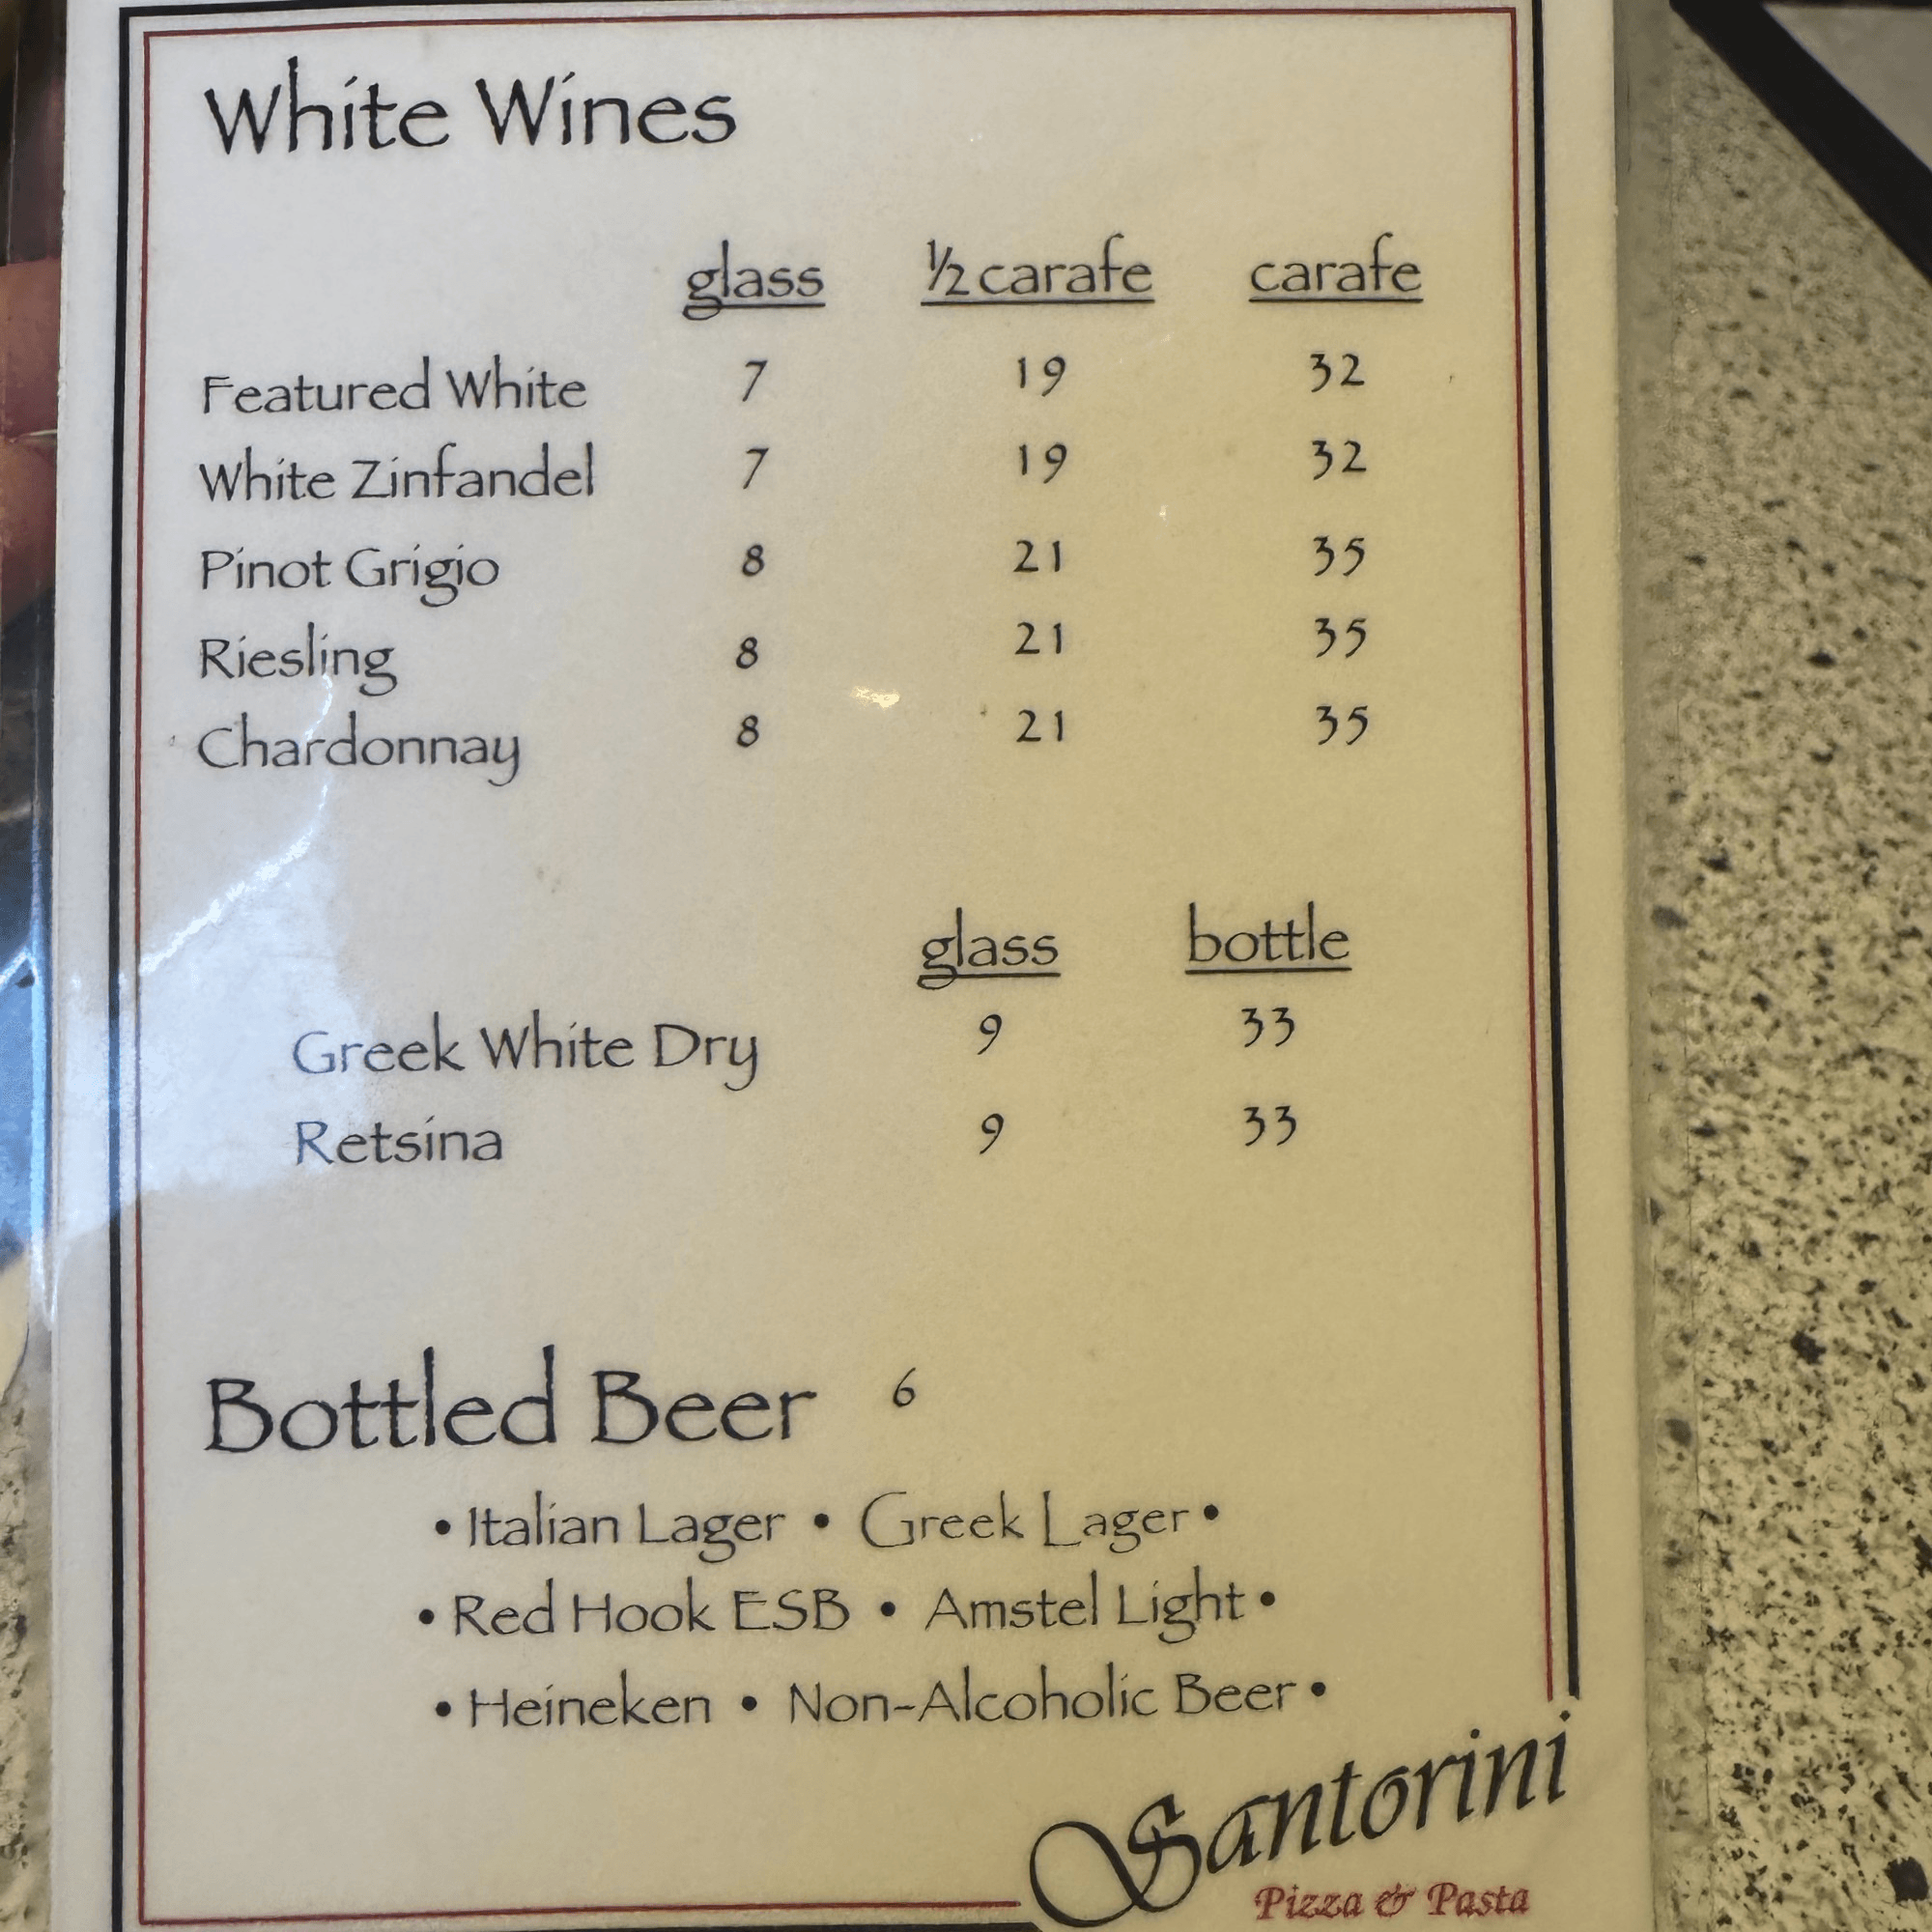 White Wines
glass ½ carafe carafe
Featured White 7 19 32
White Zinfandel 7 19 32
Pinot Grigio 8 21 35
Riesling 8 21 35
Chardonnay 8 21 35
glass bottle
Greek White Dry 9 33
Retsina 9 33
Bottled Beer 6
• Italian Lager • Greek Lager •
• Red Hook ESB • Amstel Light •
• Heineken • Non-Alcoholic Beer •
Santorini
Pizza & Pasta